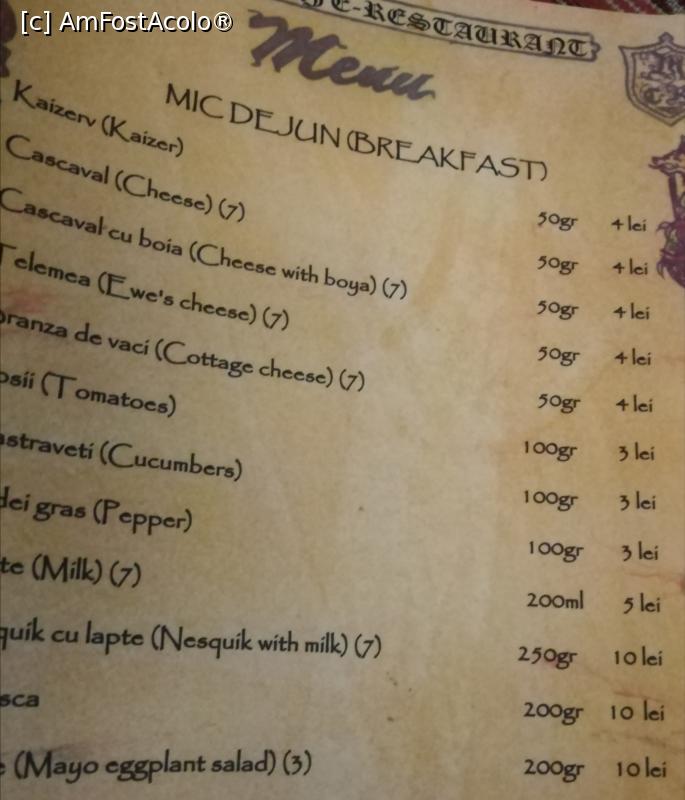 [c] AmFostAcolo®
E-RESTAURANT
Menu
MIC DEJUN (BREAKFAST)
Kaizerv (Kaizer) 50gr 4 lei
Cascaval (Cheese) (7) 50gr 4 lei
Cascaval cu boia (Cheese with boya) (7) 50gr 4 lei
Telemea (Ewe's cheese) (7) 50gr 4 lei
ranza de vaci (Cottage cheese) (7) 50gr 4 lei
osii (Tomatoes) 100gr 3 lei
astraveti (Cucumbers) 100gr 3 lei
dei gras (Pepper) 100gr 3 lei
te (Milk) (7) 200ml 5 lei
quik cu lapte (Nesquik with milk) (7) 250gr 10 lei
sca 200gr 10 lei
e (Mayo eggplant salad) (3) 200gr 10 lei